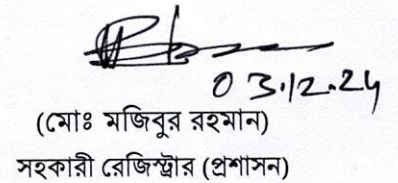 03.12.24
(মোঃ মজিবুর রহমান)
সহকারী রেজিস্ট্রার (প্রশাসন)